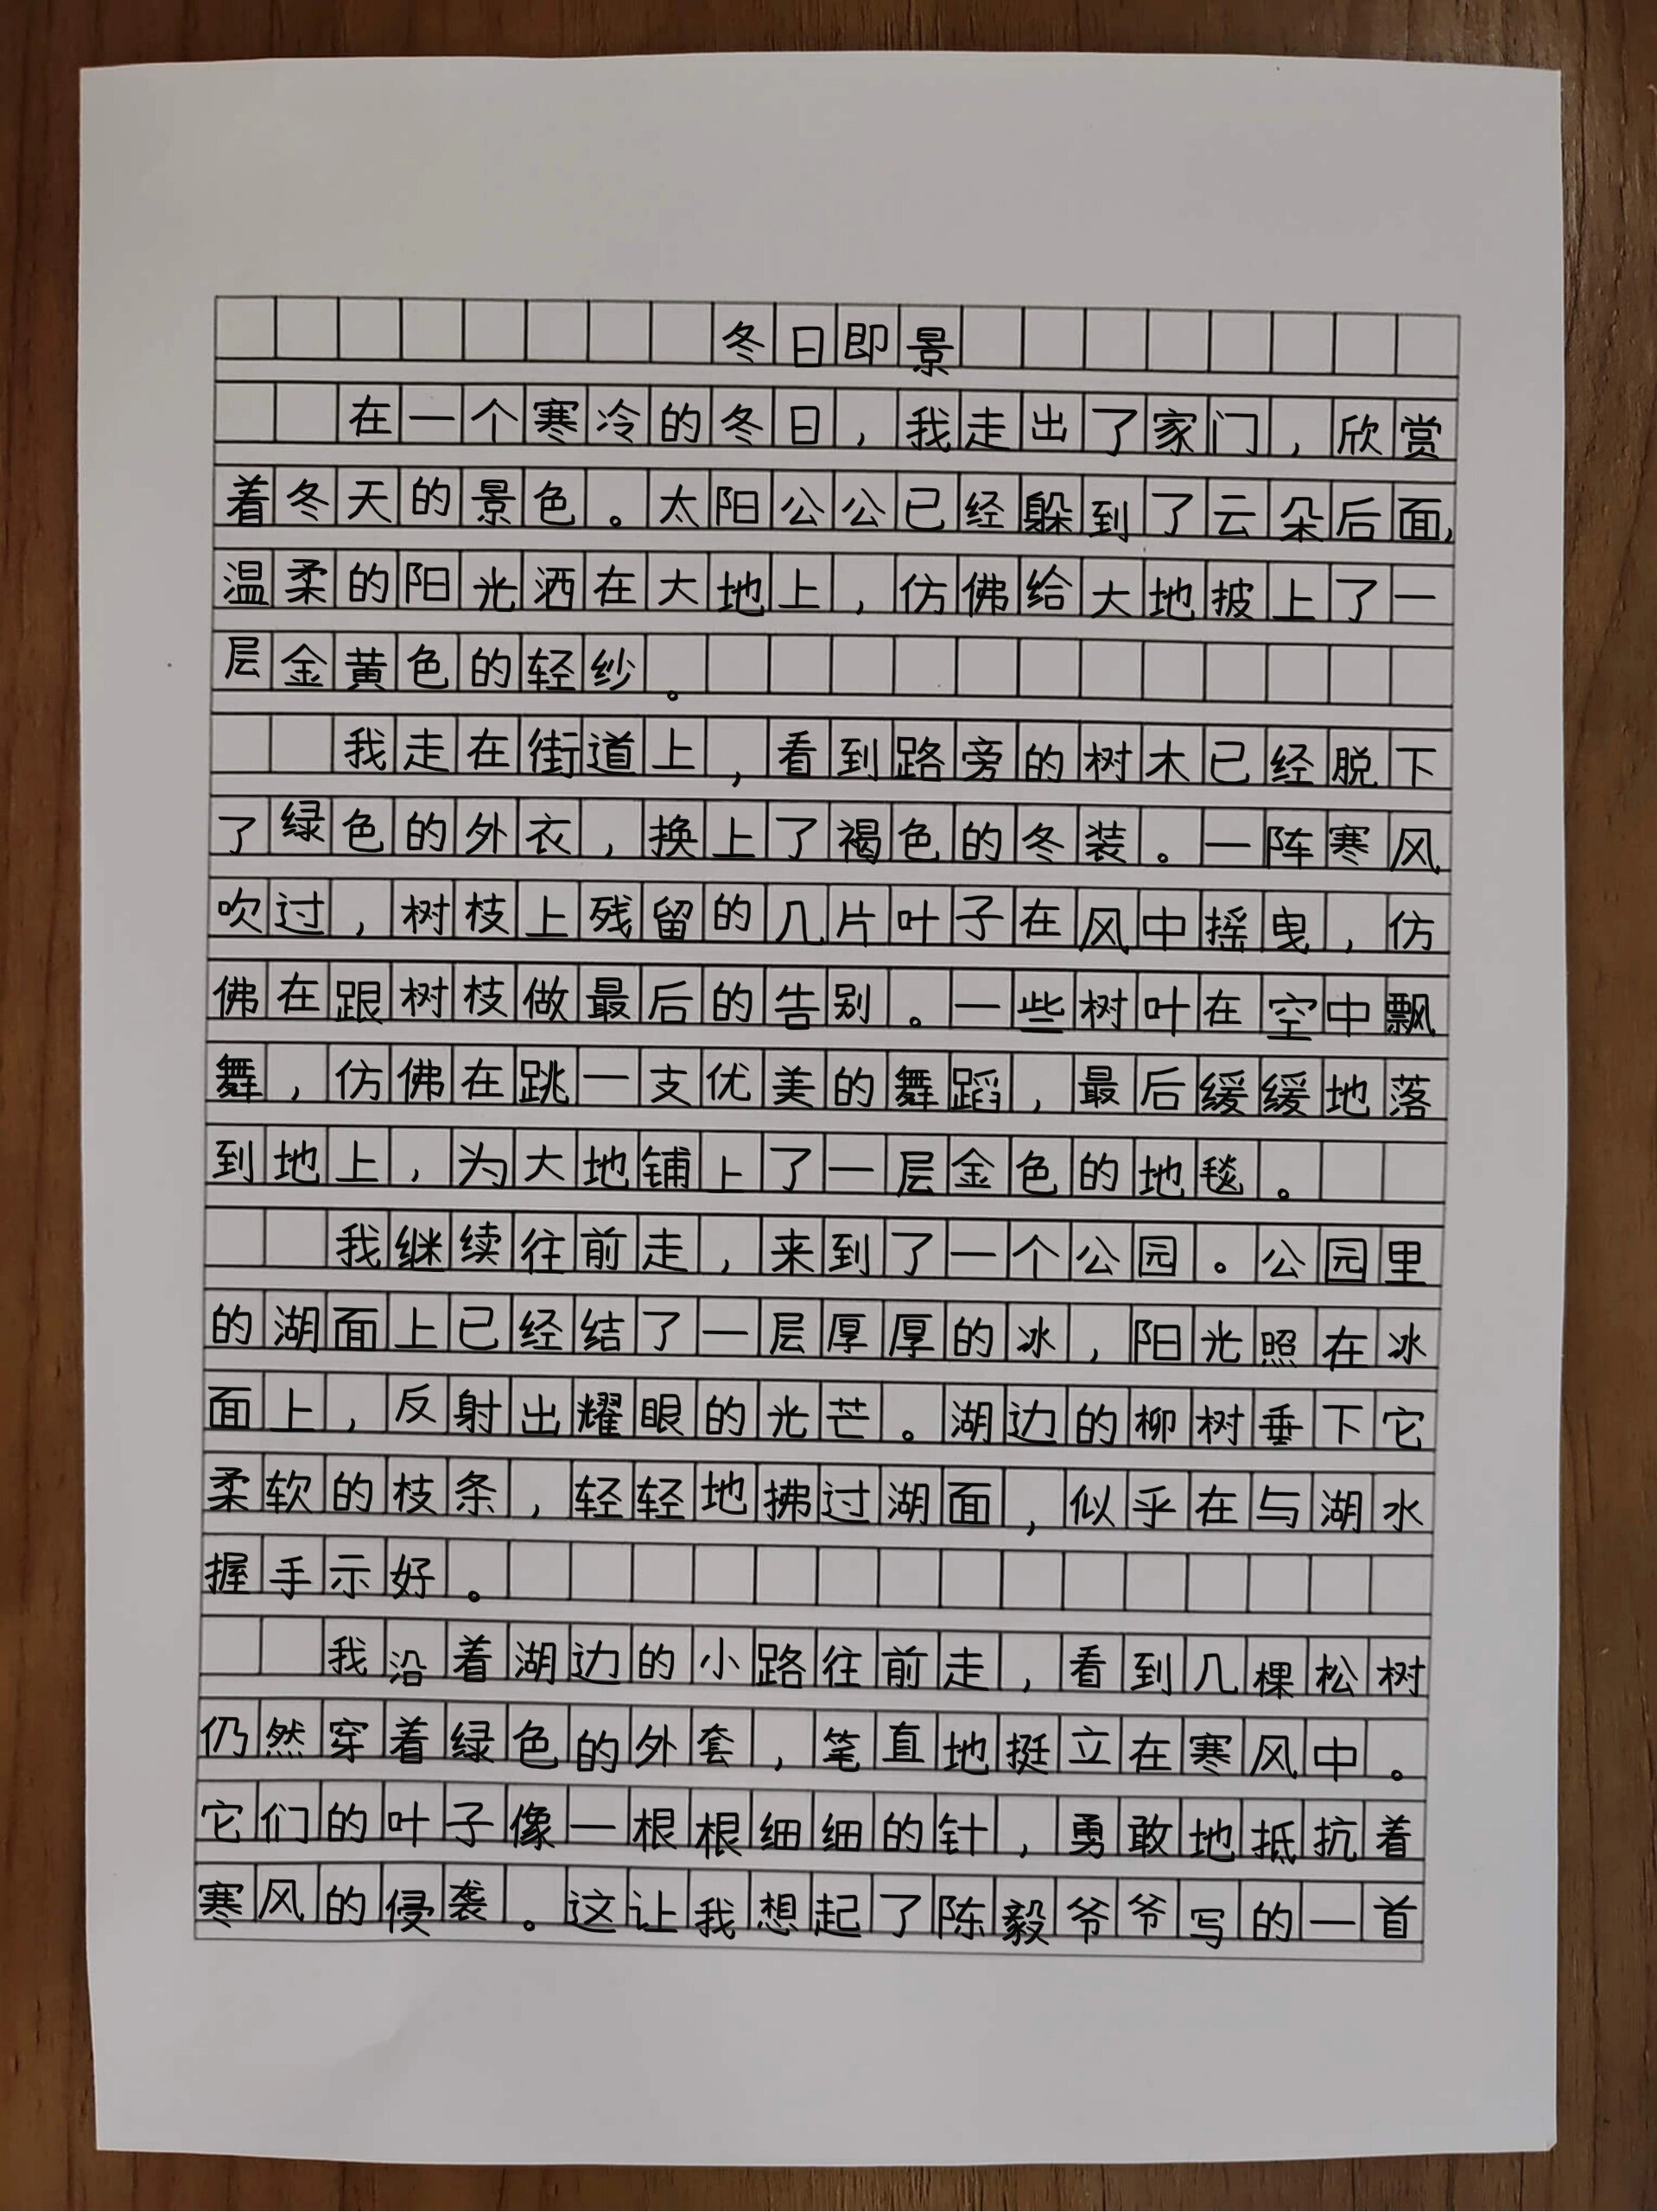 冬日即景
在一个寒冷的冬日，我走出了家门，欣赏
着冬天的景色。太阳公公已经躲到了云朵后面，
温柔的阳光洒在大地上，仿佛给大地披上了一
层金黄色的轻纱。
我走在街道上，看到路旁的树木已经脱下
了绿色的外衣，换上了褐色的冬装。一阵寒风
吹过，树枝上残留的几片叶子在风中摇曳，仿
佛在跟树枝做最后的告别。一些树叶在空中飘
舞，仿佛在跳一支优美的舞蹈，最后缓缓地落
到地上，为大地铺上了一层金色的地毯。
我继续往前走，来到了一个公园。公园里
的湖面上已经结了一层厚厚的冰，阳光照在冰
面上，反射出耀眼的光芒。湖边的柳树垂下它
柔软的枝条，轻轻地拂过湖面，似乎在与湖水
握手示好。
我沿着湖边的小路往前走，看到几棵松树
仍然穿着绿色的外套，笔直地挺立在寒风中。
它们的叶子像一根根细细的针，勇敢地抵抗着
寒风的侵袭。这让我想起了陈毅爷爷写的一首